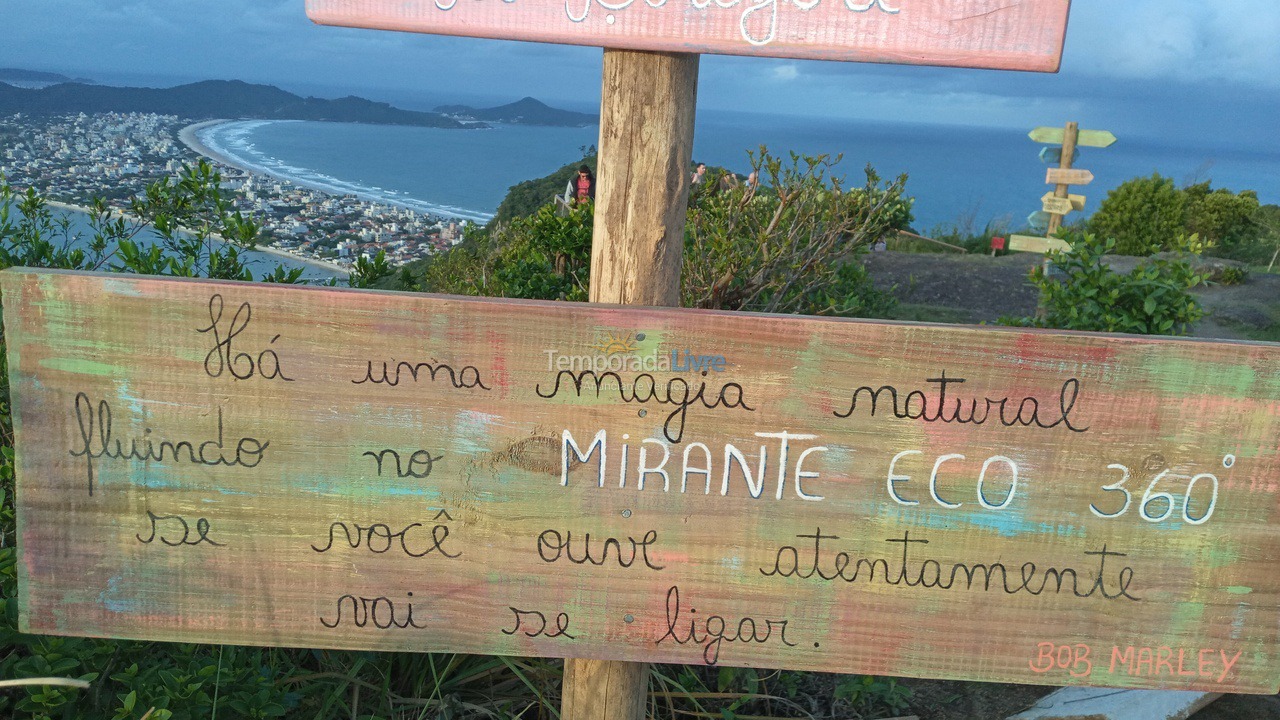 Há uma magia natural
fluindo no MIRANTE ECO 360°
se você ouve atentamente
vai se ligar.
BOB MARLEY
TemporadaLivre